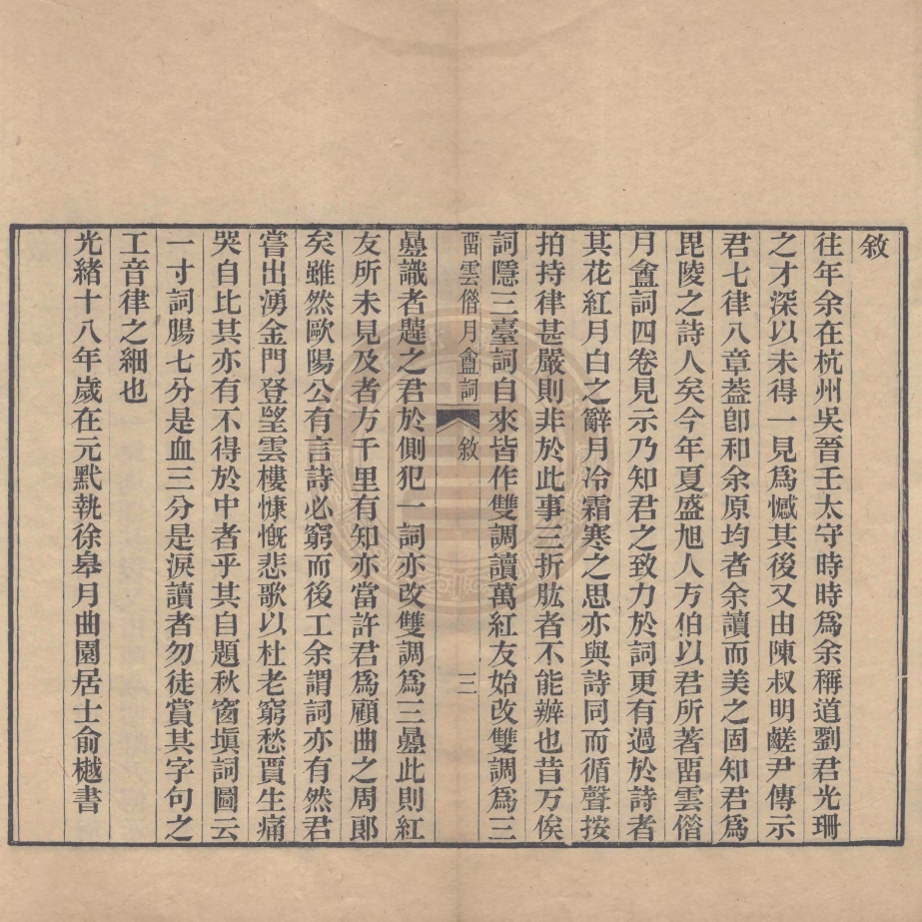 敘
往年余在杭州吳晉壬太守時時爲余稱道劉君光珊
之才深以未得一見爲憾其後又由陳叔明鹺尹傳示
君七律八章葢卽和余原均者余讀而美之固知君爲
毘陵之詩人矣今年夏盛旭人方伯以君所著畱雲僭
月盦詞四卷見示乃知君之致力於詞更有過於詩者
其花紅月白之辭月冷霜寒之思亦與詩同而循聲按
拍持律甚嚴則非於此事三折肱者不能辦也昔万俟
詞隱三臺詞自來皆作雙調讀萬紅友始改雙調爲三
畱雲僭月盦詞 敘 三
疊識者韙之君於側犯一詞亦改雙調爲三疊此則紅
友所未見及者方千里有知亦當許君爲顧曲之周郞
矣雖然歐陽公有言詩必窮而後工余謂詞亦有然君
嘗出湧金門登望雲樓慷慨悲歌以杜老窮愁賈生痛
哭自比其亦有不得於中者乎其自題秋窗塡詞圖云
一寸詞腸七分是血三分是淚讀者勿徒賞其字句之
工音律之細也
光緒十八年歲在元黓執徐皋月曲園居士俞樾書